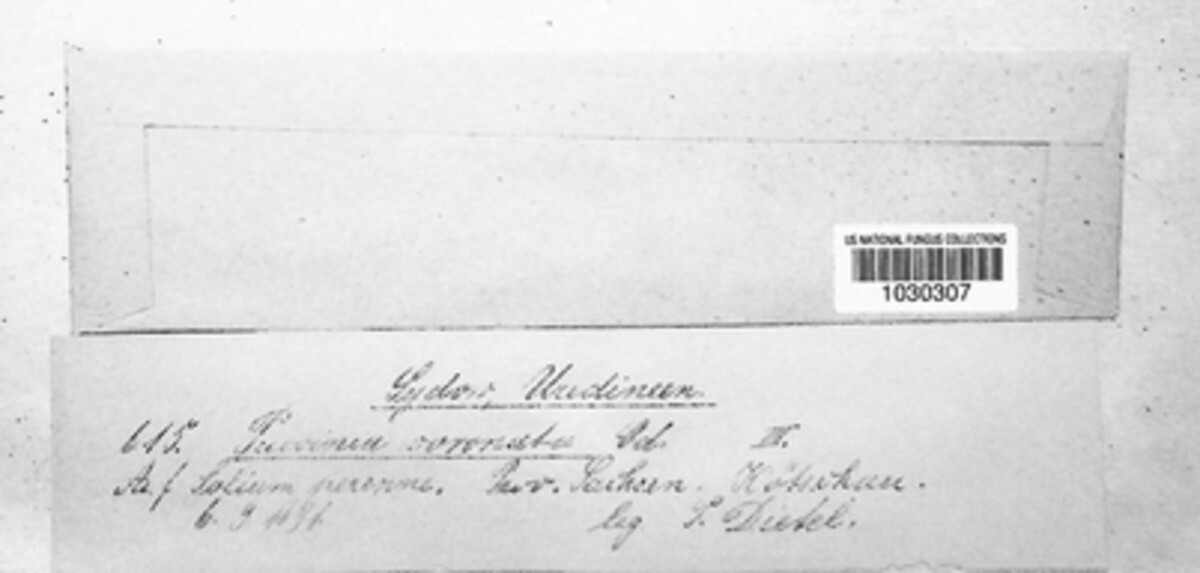 US NATIONAL FUNGUS COLLECTIONS
1030307
Sydow, Uredineen
615. Puccinia coronata Cd. III.
Auf Lolium perenne. Prov. Sachsen. Kötschau.
leg P. Dietel.